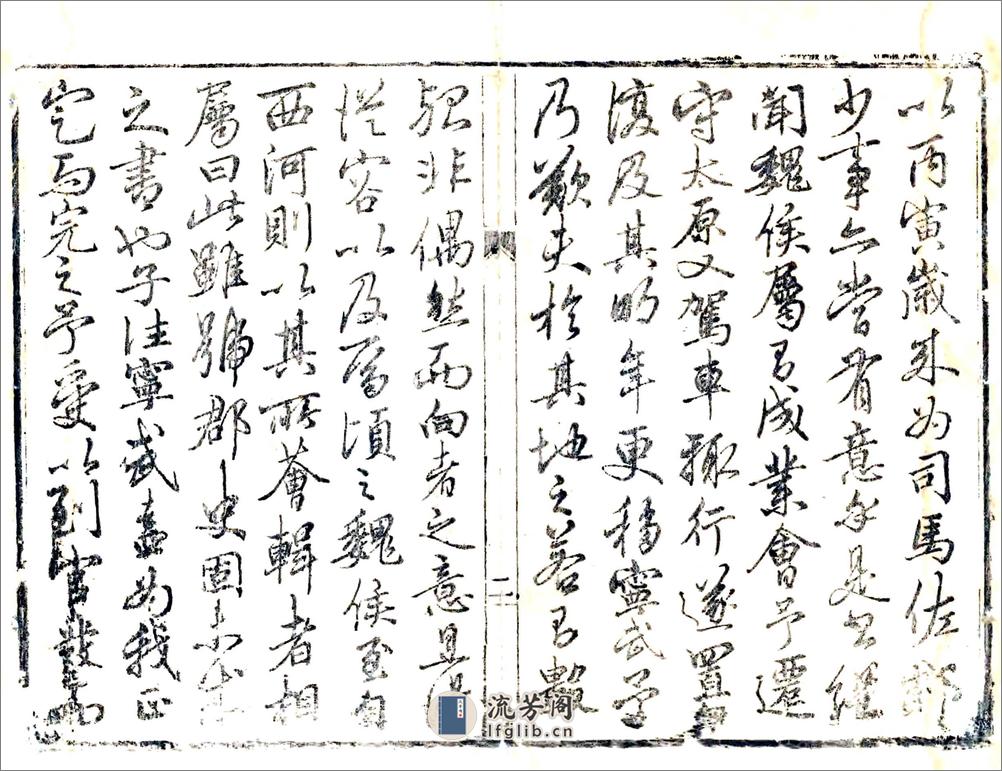 以丙寅歲來為司馬佐類
少事亦嘗有意於是書經
聞魏侯屬有成業會予遷
守太原又駕車輙行遂置
復及其明年更移寧武予
乃歎夫於其地之若有數
報非偶然而向者之意且得
從容以及焉頃之魏侯至自
西河則以其所薈輯者相
屬曰此雖號郡史固未成
之書也子往寧武盍為我正
定而完之予受以到官發而
二
流芳阁
lfglib.cn